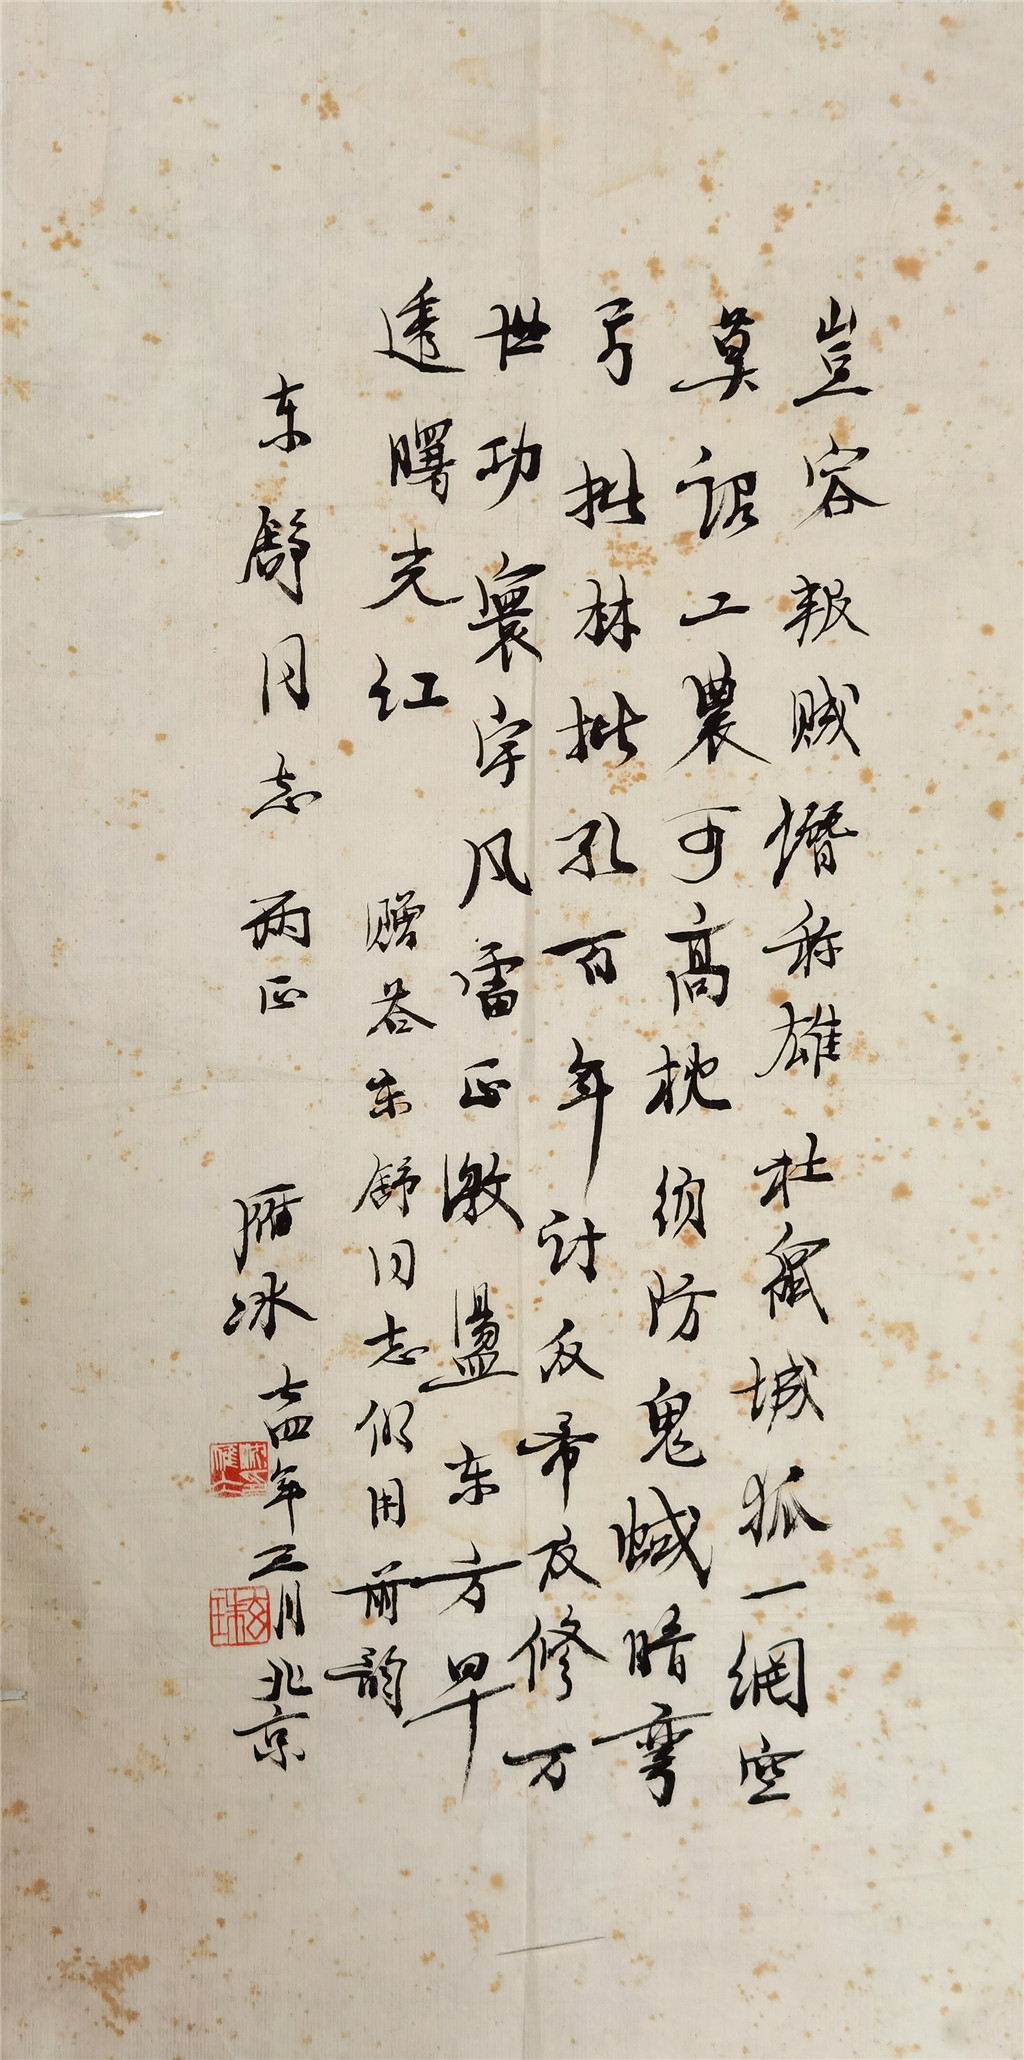 豈容叛贼僭称雄社鼠城狐一網空
莫谓工農可高枕须防鬼蜮暗弯
弓批林批孔百年计反帝反修万
世功寰宇风雷正激盪东方早
透曙光红
赠答东舒同志仍用前韵
东舒同志两正
雁冰七四年三月北京